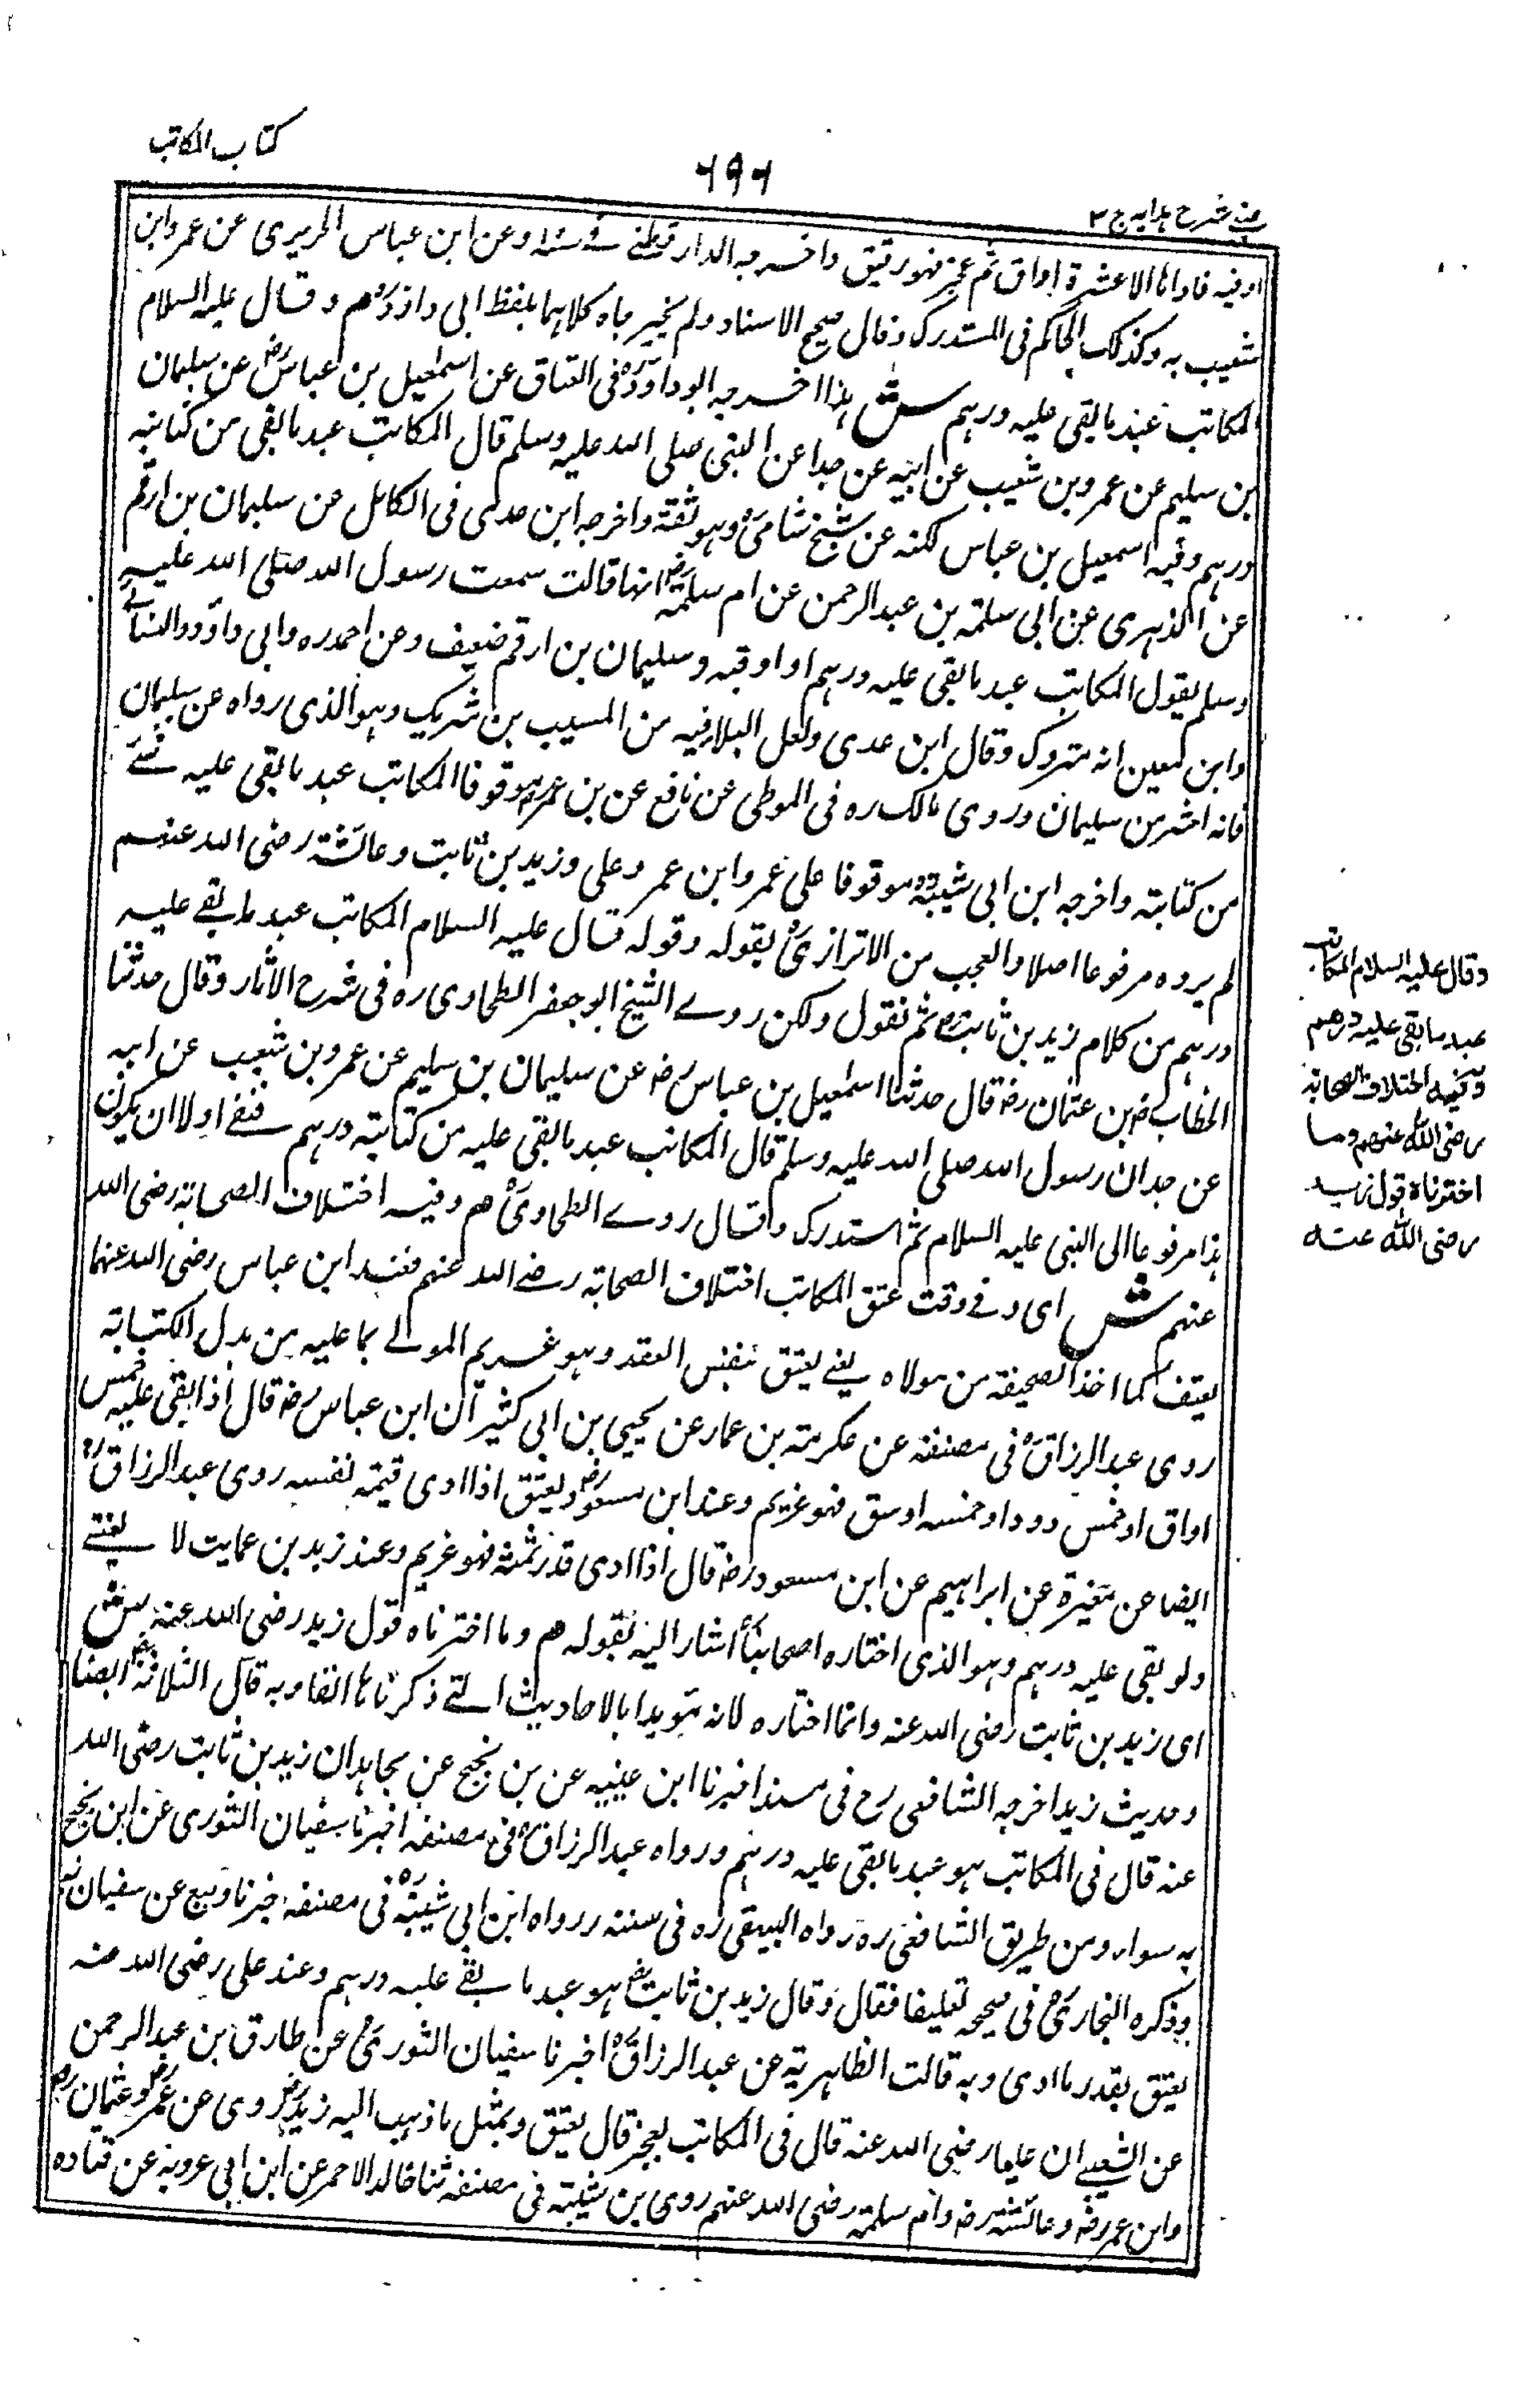 كتاب المكاتب
٦٩٦
عينے شرح ہدايہ ج ٣
اوقيه فاداها الا عشرة اواق ثم عجز فهو رقيق واخرجه الدار قطنے فے سننه وعن ابن عباس الجريرى عن عمرو ابن
شعيب به وكذلك الحاكم فى المستدرك وقال صحيح الاسناد ولم يخرجاه كلاهما بلفظ ابى داؤد رح هم وقال عليه السلام
المكاتب عبد ما بقى عليه درهم ش هذا اخرجه ابو داؤد ره فى العتاق عن اسمعيل بن عباس رض عن سليمان
بن سليم عن عمرو بن شعيب عن ابيه عن جده عن النبى صلى الله عليه وسلم قال المكاتب عبد ما بقى من كتابته
درهم وفيه اسمعيل بن عباس لكنه عن شيخ شامى وهو ثقة واخرجه ابن عدى فى الكامل عن سليمان بن ارقم
عن الزهرى عن ابى سلمة بن عبد الرحمن عن ام سلمة رض انها قالت سمعت رسول الله صلى الله عليه
وسلم يقول المكاتب عبد ما بقى عليه درهم او اوقيه وسليمان بن ارقم ضعيف وعن احمد ره وابى داؤد والنسائے
وابن معين انه متروك وقال ابن عدى ولعل البلا فيه من المسيب بن شريك وهو الذى رواه عن سليمان
فانه اشر من سليمان وروى مالك ره فى الموطى عن نافع عن بن عمر رض موقوفا المكاتب عبد ما بقى عليه شے
من كتابته واخرجه ابن ابى شيبة ره موقوفا على عمر وابن عمر وعلى وزيد بن ثابت وعائشة رضى الله عنهم
لم يروه مرفوعا اصلا والعجب من الاترازى بقوله وقوله قال عليه السلام المكاتب عبد ما بقے عليه
درهم من كلام زيد بن ثابت رض ثم نقول ولكن روے الشيخ ابو جعفر الطحاوى ره فى شرح الآثار وقال حدثنا
الخطاب ض بن عثمان رض قال حدثنا اسمعيل بن عباس رض عن سليمان بن سليم عن عمرو بن شعيب عن ابيه
عن جد ان رسول الله صلى الله عليه وسلم قال المكاتب عبد ما بقى عليه من كتابته درهم فنفے اولا ان يكون
هذا مرفوعا الى النبى عليه السلام ثم استدرك وقال روے الطحاوى هم وفيه اختلاف الصحابة رضى الله
عنهم ش اى وفے وقت عتق المكاتب اختلاف الصحابة رضے الله عنهم فعند ابن عباس رضى الله عنهما
يعتف كما اخذ الصحيفة من مولاه يعنے يعتق بنفس العقد وهو غريم المولے بما عليه من بدل الكتابة
روى عبد الرزاق ره فى مصنفه عن عكرمة بن عمار عن يحيى بن ابى كثير ان ابن عباس رض قال اذا بقى عليه خمس
اواق او خمس دود او خمسه اوسق فهو غريم وعند ابن مسعود رض يعتق اذا ادى قيمة نفسه روى عبد الرزاق ره
ايضا عن مغيرة عن ابراهيم عن ابن مسعود رض قال اذا ادى قدر ثمنه فهو غريم وعند زيد بن عمايت لا يعتے
ولو بقى عليه درهم وهو الذى اختاره اصحابنا اشار اليه بقوله هم وما اخترناه قول زيد رضى الله عنه ش
اى زيد بن ثابت رضى الله عنه وانما اختاره لانه مؤيدا بالاحاديث التے ذكرناها انفا وبه قال الثلاثة ايضا
وحديث زيد اخرجه الشافعى رح فى مسند اخبرنا ابن عيينه عن بن نجيح عن مجاهد ان زيد بن ثابت رضى الله
عنه قال فى المكاتب هو عبد ما بقى عليه درهم ورواه عبد الرزاق ره فى مصنفه اخبرنا سفيان الثورى عن ابن نجيح
به سواء ومن طريق الشافعى ره رواه البيهقى ره فى سننه ورواه ابن ابى شيبة ره فى مصنفه خبرنا وكيع عن سفيان به
وذكره البخارى ره فى صحيحه تعليقا فقال وقال زيد بن ثابت رض هو عبد ما بقے عليه درهم وعند على رضى الله عنه
يعتق بقدر ما ادى وبه قالت الظاهرية عن عبد الرزاق ره اخبرنا سفيان الثورى ره عن طارق بن عبد الرحمن
عن الشعبے ان عليا رضى الله عنه قال فى المكاتب يعجز قال يعتق وبمثل ما ذهب اليه زيد رض روى عن عمر رض وعثمان رض
وابن عمر رض وعائشة رض وام سلمة رضى الله عنهم روى بن شيبة فى مصنفه ثنا خالد الاحمر عن ابن ابى عروبة عن قتاده
وقال عليه السلام المكاتب
عبد ما بقى عليه درهم
وفيه اختلاف الصحابة
رضى الله عنهم وما
اخترناه قول زيد
رضى الله عنه